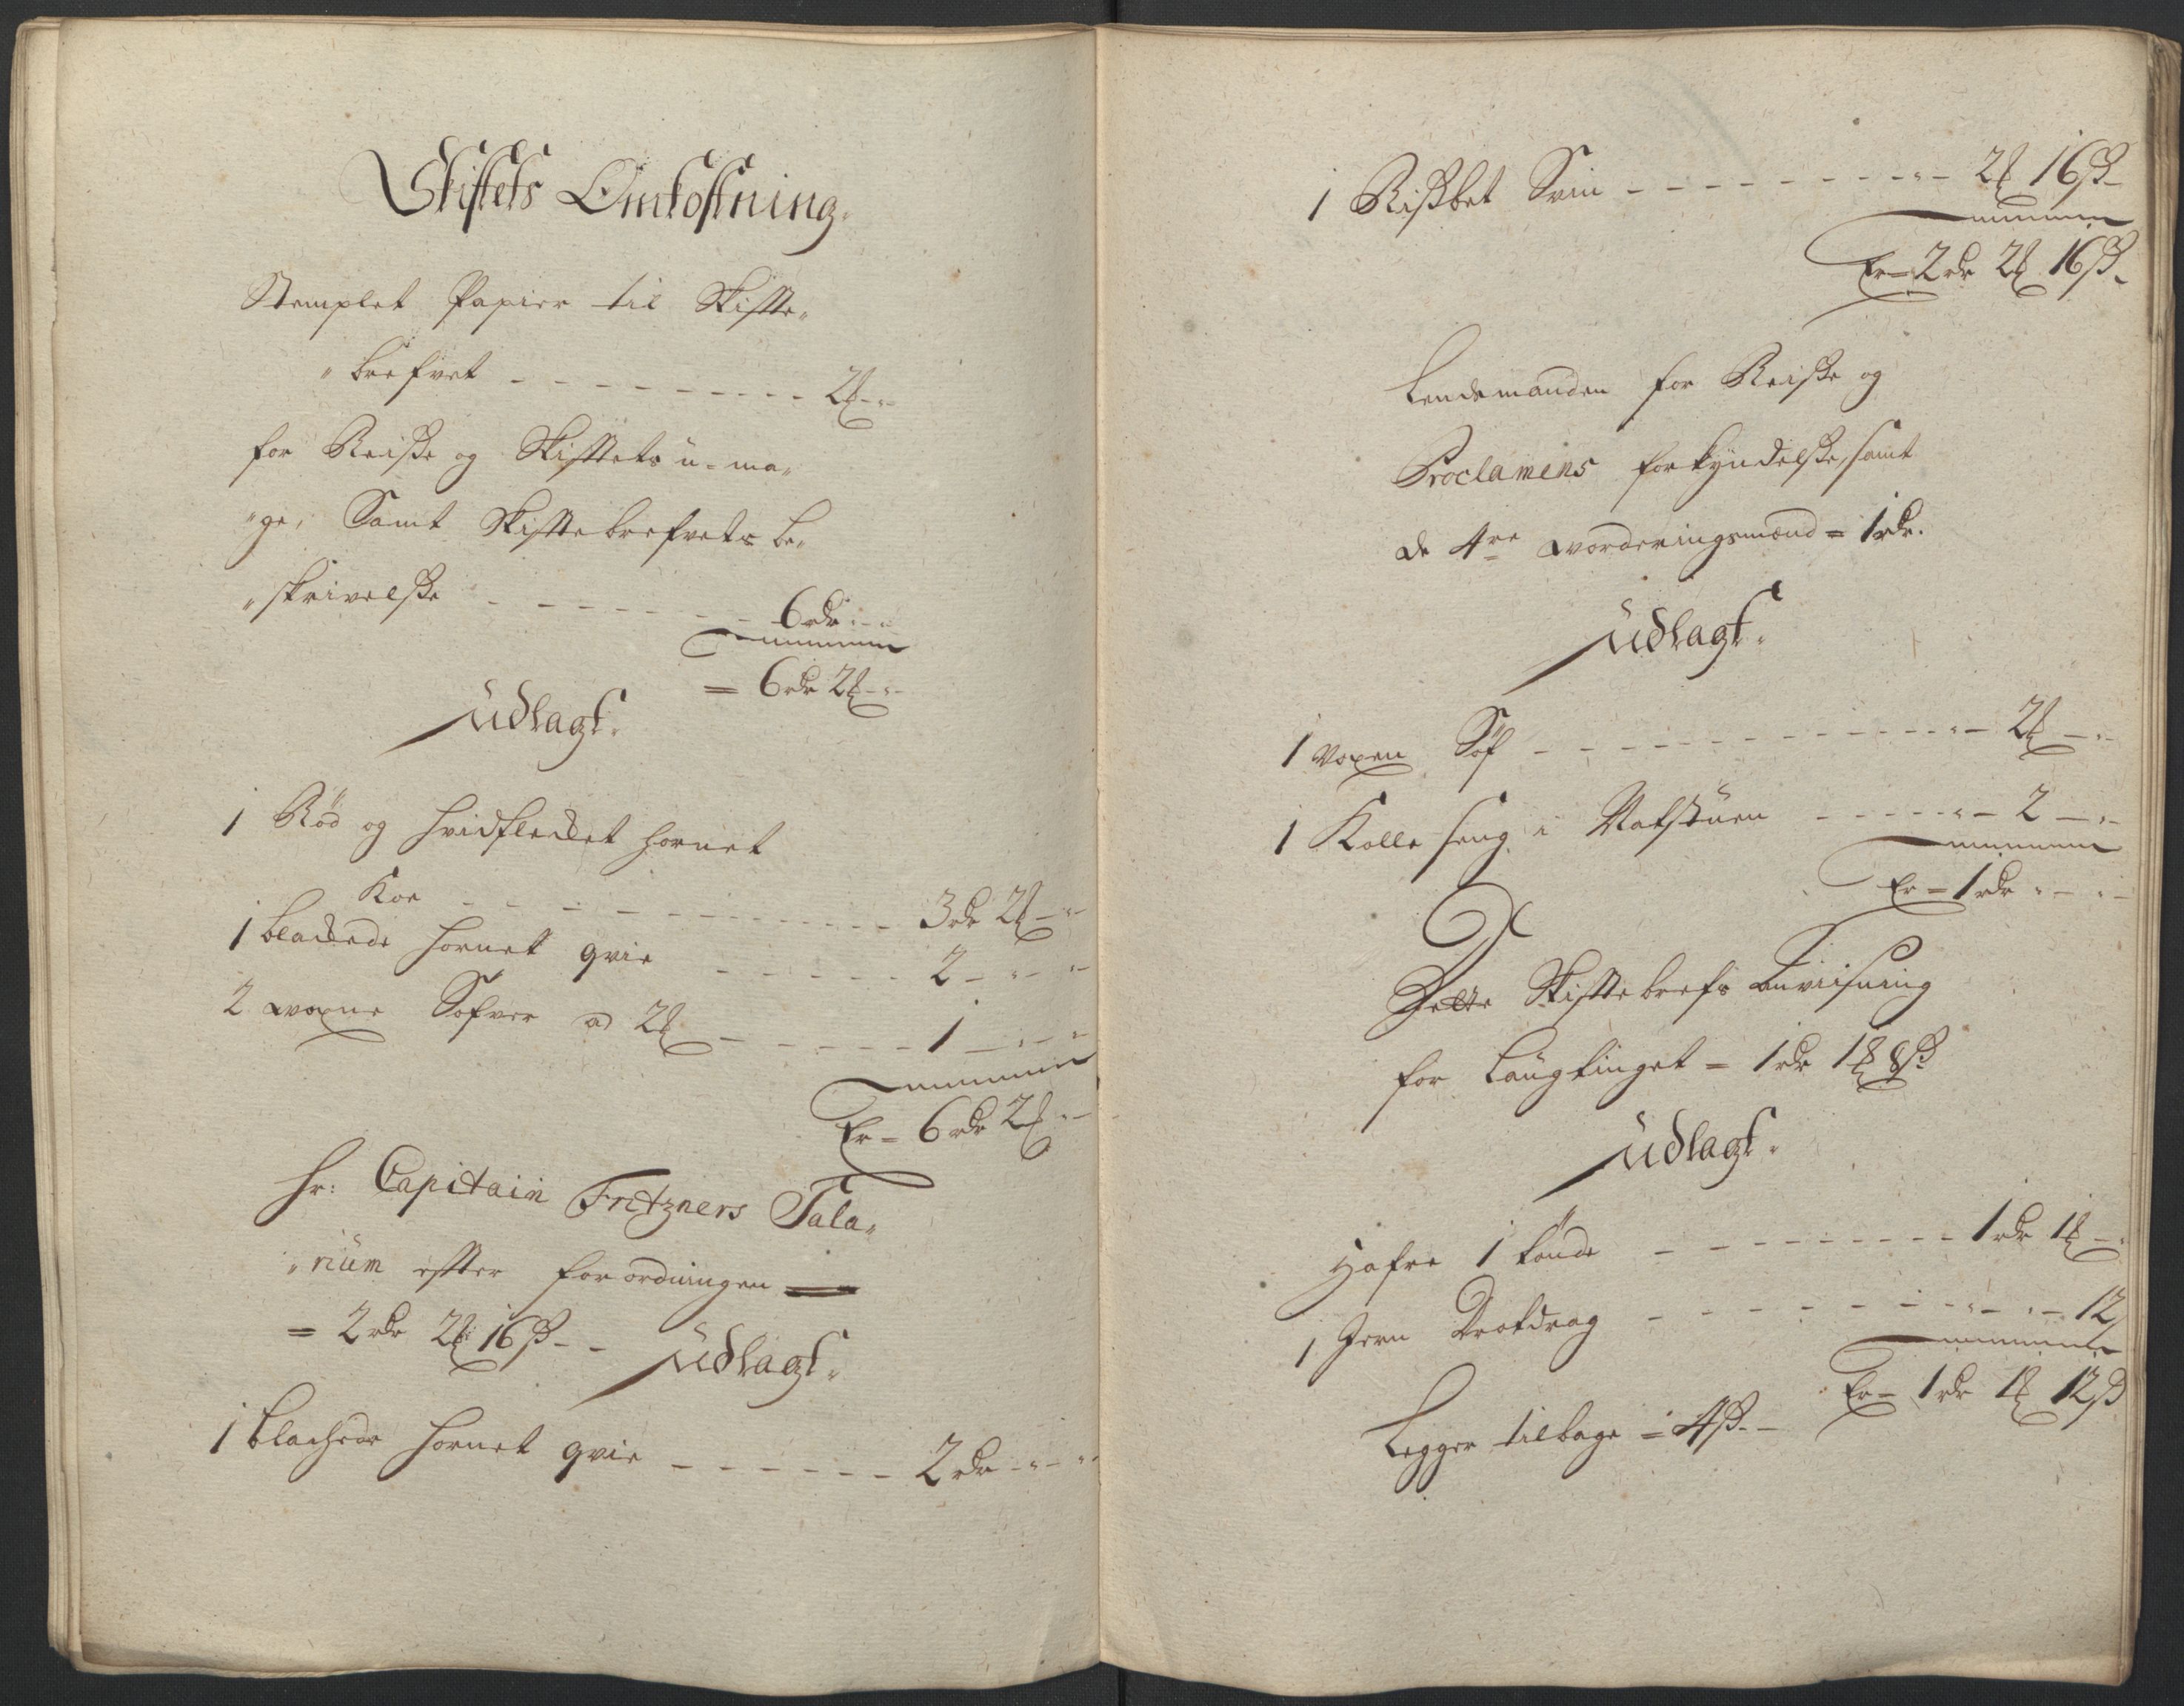 Skiftets Omkostning.
Stemplet Papier til Skifte„
„brefvet - - - - - - - - - - 2 ℔ - „
for Reiße og Skiftets u=ma„
„ge, Samt Skiftebrefvets be„
„skrivelße - - - - - - 6 rdr „ - „
= 6 rdr 2 ℔ - „
Udlagt.
1 Rød og hvidflecket hornet
Koe - - - - - - - - - - 3 rdr 2 ℔ - „
1 blackede hornet qvie - - - - - 2 - „ - „
2 woxne Søfver ad 2 ℔ - - - - - - 1 - „ - „
Er = 6 rdr 2 ℔ „ -
Hr: Capitain Fritzners Sala„
„rium efter forordningen =
= 2 rdr 2 ℔ 16 ß - - Udlagt.
1 blachede hornet qvie - - - - - - 2 rdr - „ - „
1 Sviin - - - - - - - - „ - 2 ℔ 16 ß -
Er = 2 rdr 2 ℔ 16 ß -
Lendsmanden for Reiße og
Proclamens forkyndelße, samt
de 4re worderingsmænd = 1 rdr.
Udlagt.
1 Voxen Søf - - - - - - - - - - - „ - 2 ℔ - „
1 Kolle seng i - - - - - „ - 2 - „
Er = 1 rdr „ - „ -
Dette Skiftebrefs Anviisning
for Laugtinget = 1 rdr 1 ℔ 8 ß
Udlagt.
Hafre 1 tønde - - - - - - - - - 1 rdr 1 ℔ - „
1 Jern Drotdrag - - - - - - - „ - „ - 12
Er = 1 rdr 1 ℔ 12 ß
Legger tilbage = 4 ß. -